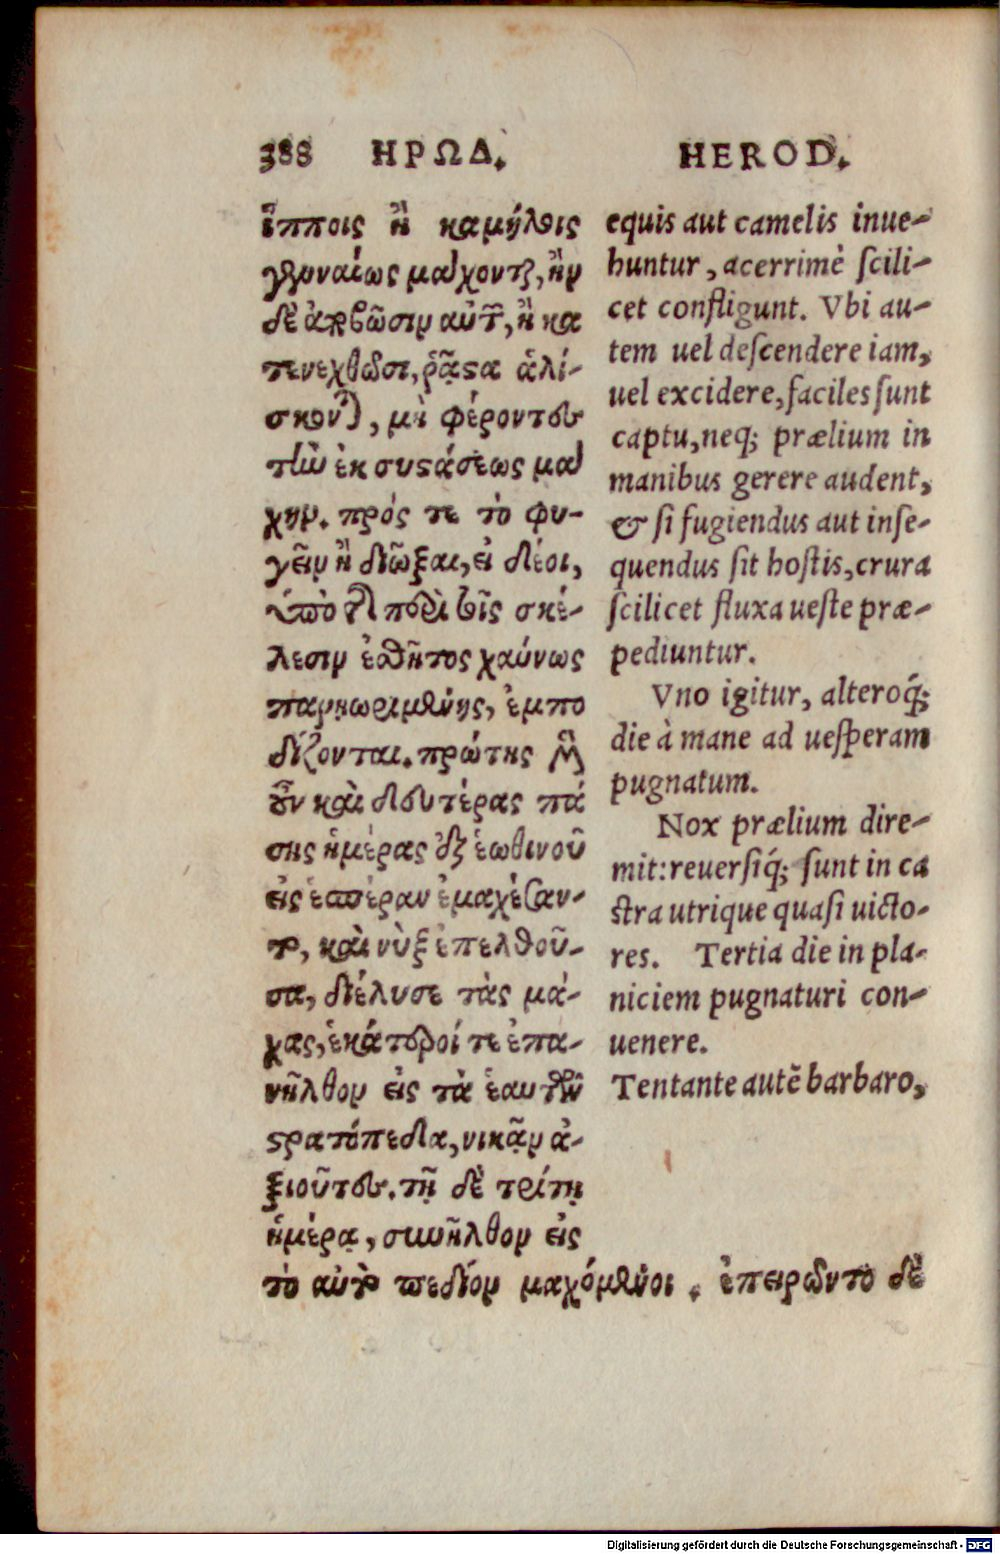 388 ΗΡΩΔ.
ἵπποις ἢ καμήλοις
γενναίως μάχονται, ἢν
δὲ ἀποβῶσιν αὐτῶν, ἢ κα
τενεχθῶσι, ῥᾷστα ἁλί-
σκονται, μὴ φέροντες
τὴν ἐκ συστάσεως μά
χην. πρός τε τὸ φυ-
γεῖν ἢ διῶξαι, εἰ δέοι,
ὑπὸ τῆς περὶ τοῖς σκέ-
λεσιν ἐσθῆτος χαύνως
παρῃωρημένης, ἐμπο
δίζονται. πρώτης μὲν
οὖν καὶ δευτέρας πά
σης ἡμέρας ἐξ ἑωθινοῦ
εἰς ἑσπέραν ἐμαχέσαν-
το, καὶ νὺξ ἐπελθοῦ-
σα, διέλυσε τὰς μά-
χας, ἑκάτεροί τε ἐπα-
νῆλθον εἰς τὰ ἑαυτῶν
στρατόπεδα, νικᾷν ἀ-
ξιοῦντες. τῇ δὲ τρίτῃ
ἡμέρᾳ, συνῆλθον εἰς
τὸ αὐτὸ πεδίον μαχόμενοι. ἐπειρῶντο δὲ
HEROD.
equis aut camelis inue-
huntur, acerrimè ſcili-
cet confligunt. Vbi au-
tem uel deſcendere iam,
uel excidere, faciles ſunt
captu, neq; prælium in
manibus gerere audent,
& ſi fugiendus aut inſe-
quendus ſit hoſtis, crura
ſcilicet fluxa ueſte præ-
pediuntur.
Vno igitur, alteroq́;
die à mane ad ueſperam
pugnatum.
Nox prælium dire-
mit: reuerſiq́; ſunt in ca
ſtra utrique quaſi uicto-
res. Tertia die in pla-
niciem pugnaturi con-
uenere.
Tentante autẽ barbaro,
Digitalisierung gefördert durch die Deutsche Forschungsgemeinschaft - DFG